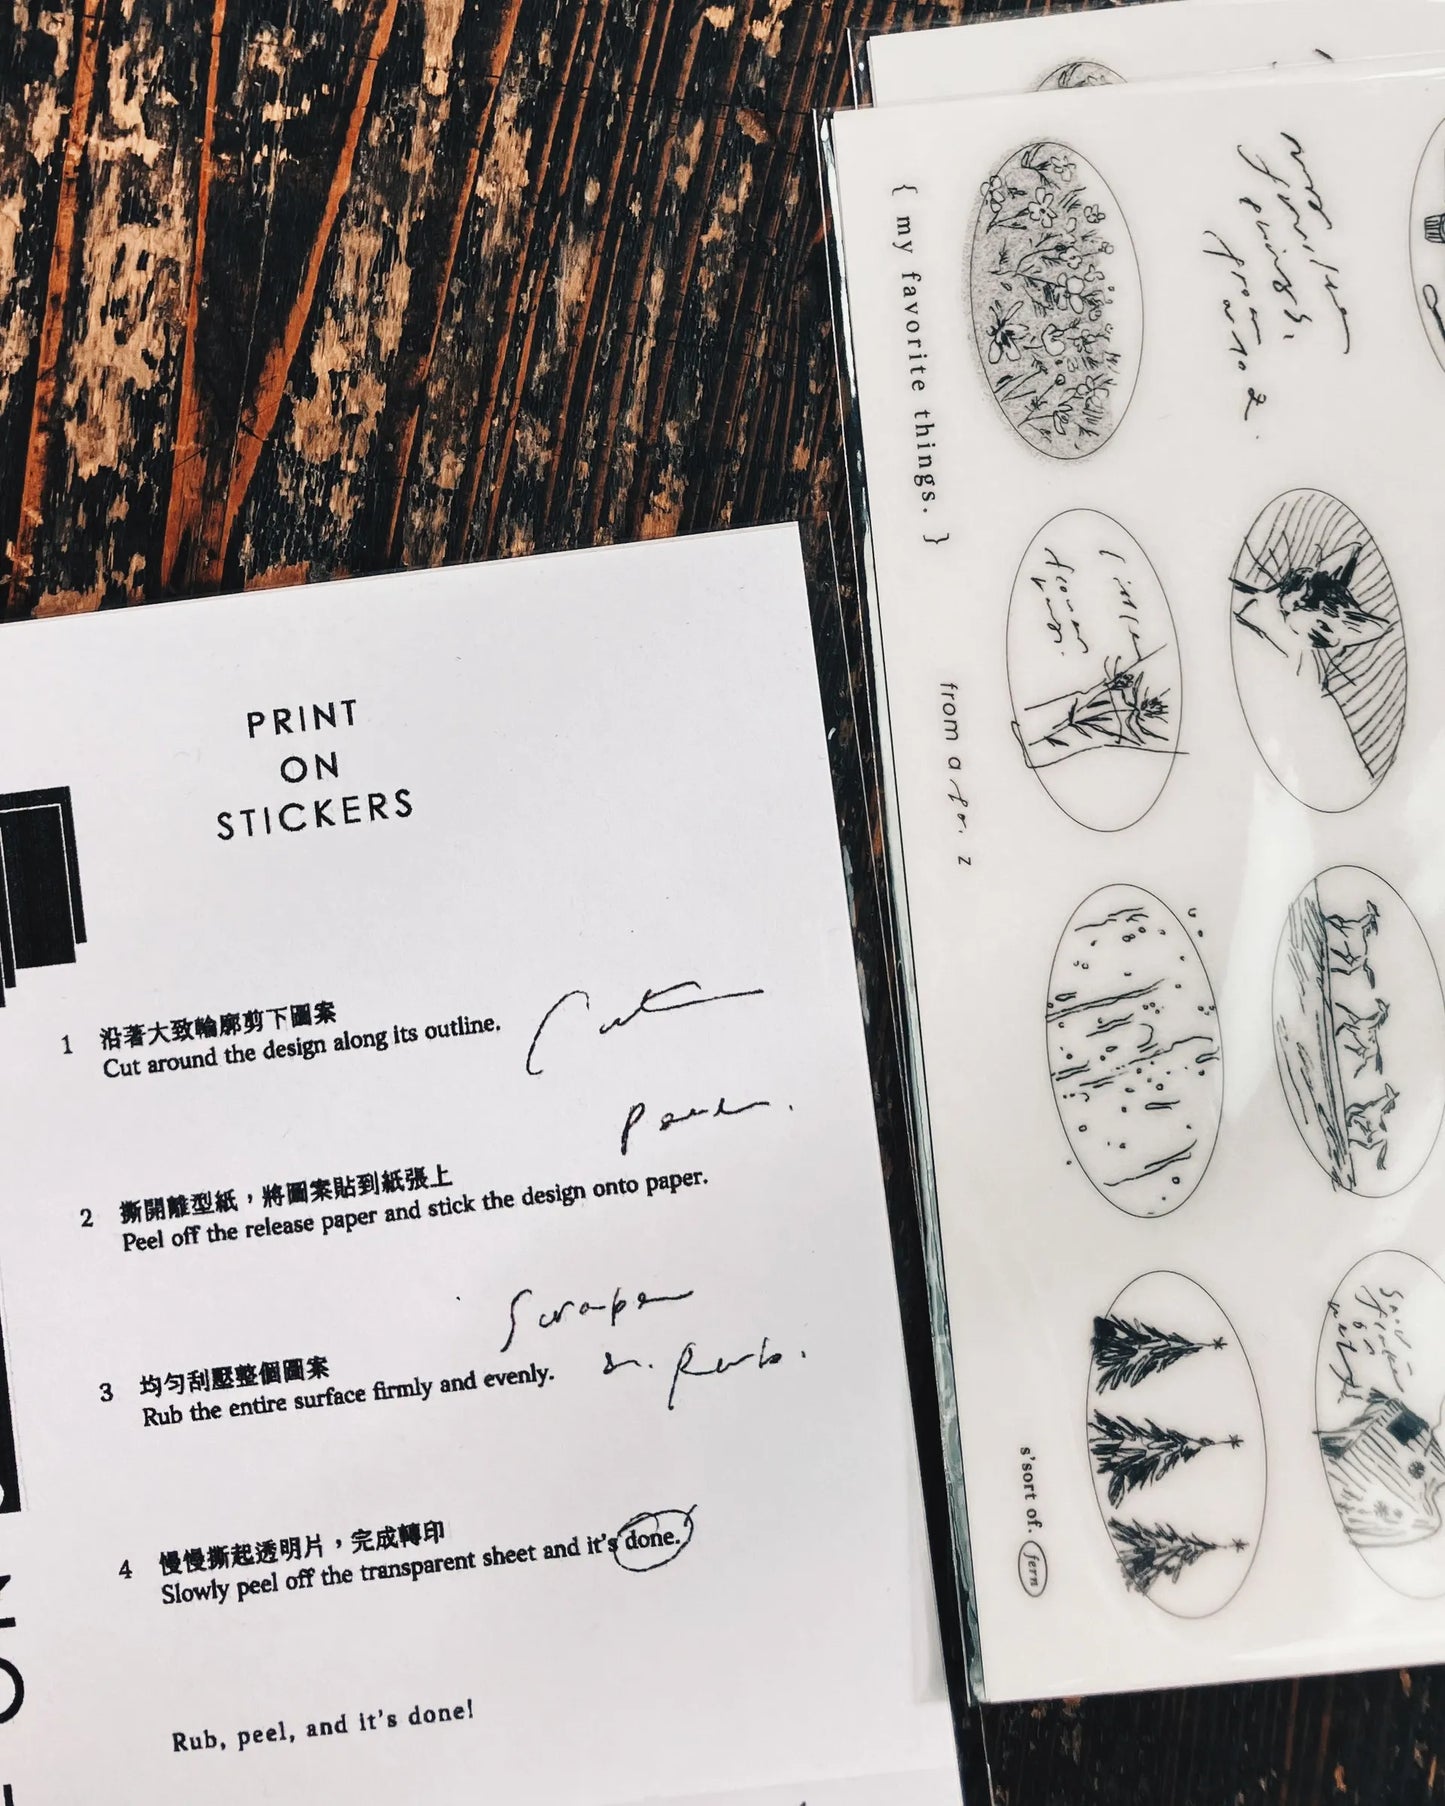 PRINT
ON
STICKERS
1 沿著大致輪廓剪下圖案
Cut around the design along its outline.
Cut
2 撕開離型紙，將圖案貼到紙張上
Peel off the release paper and stick the design onto paper.
3 均勻刮壓整個圖案
Rub the entire surface firmly and evenly.
Rub.
4 慢慢撕起透明片，完成轉印
Slowly peel off the transparent sheet and it's done.
Rub, peel, and it's done!
{ my favorite things. }
from a to. z
s'sort of. fern